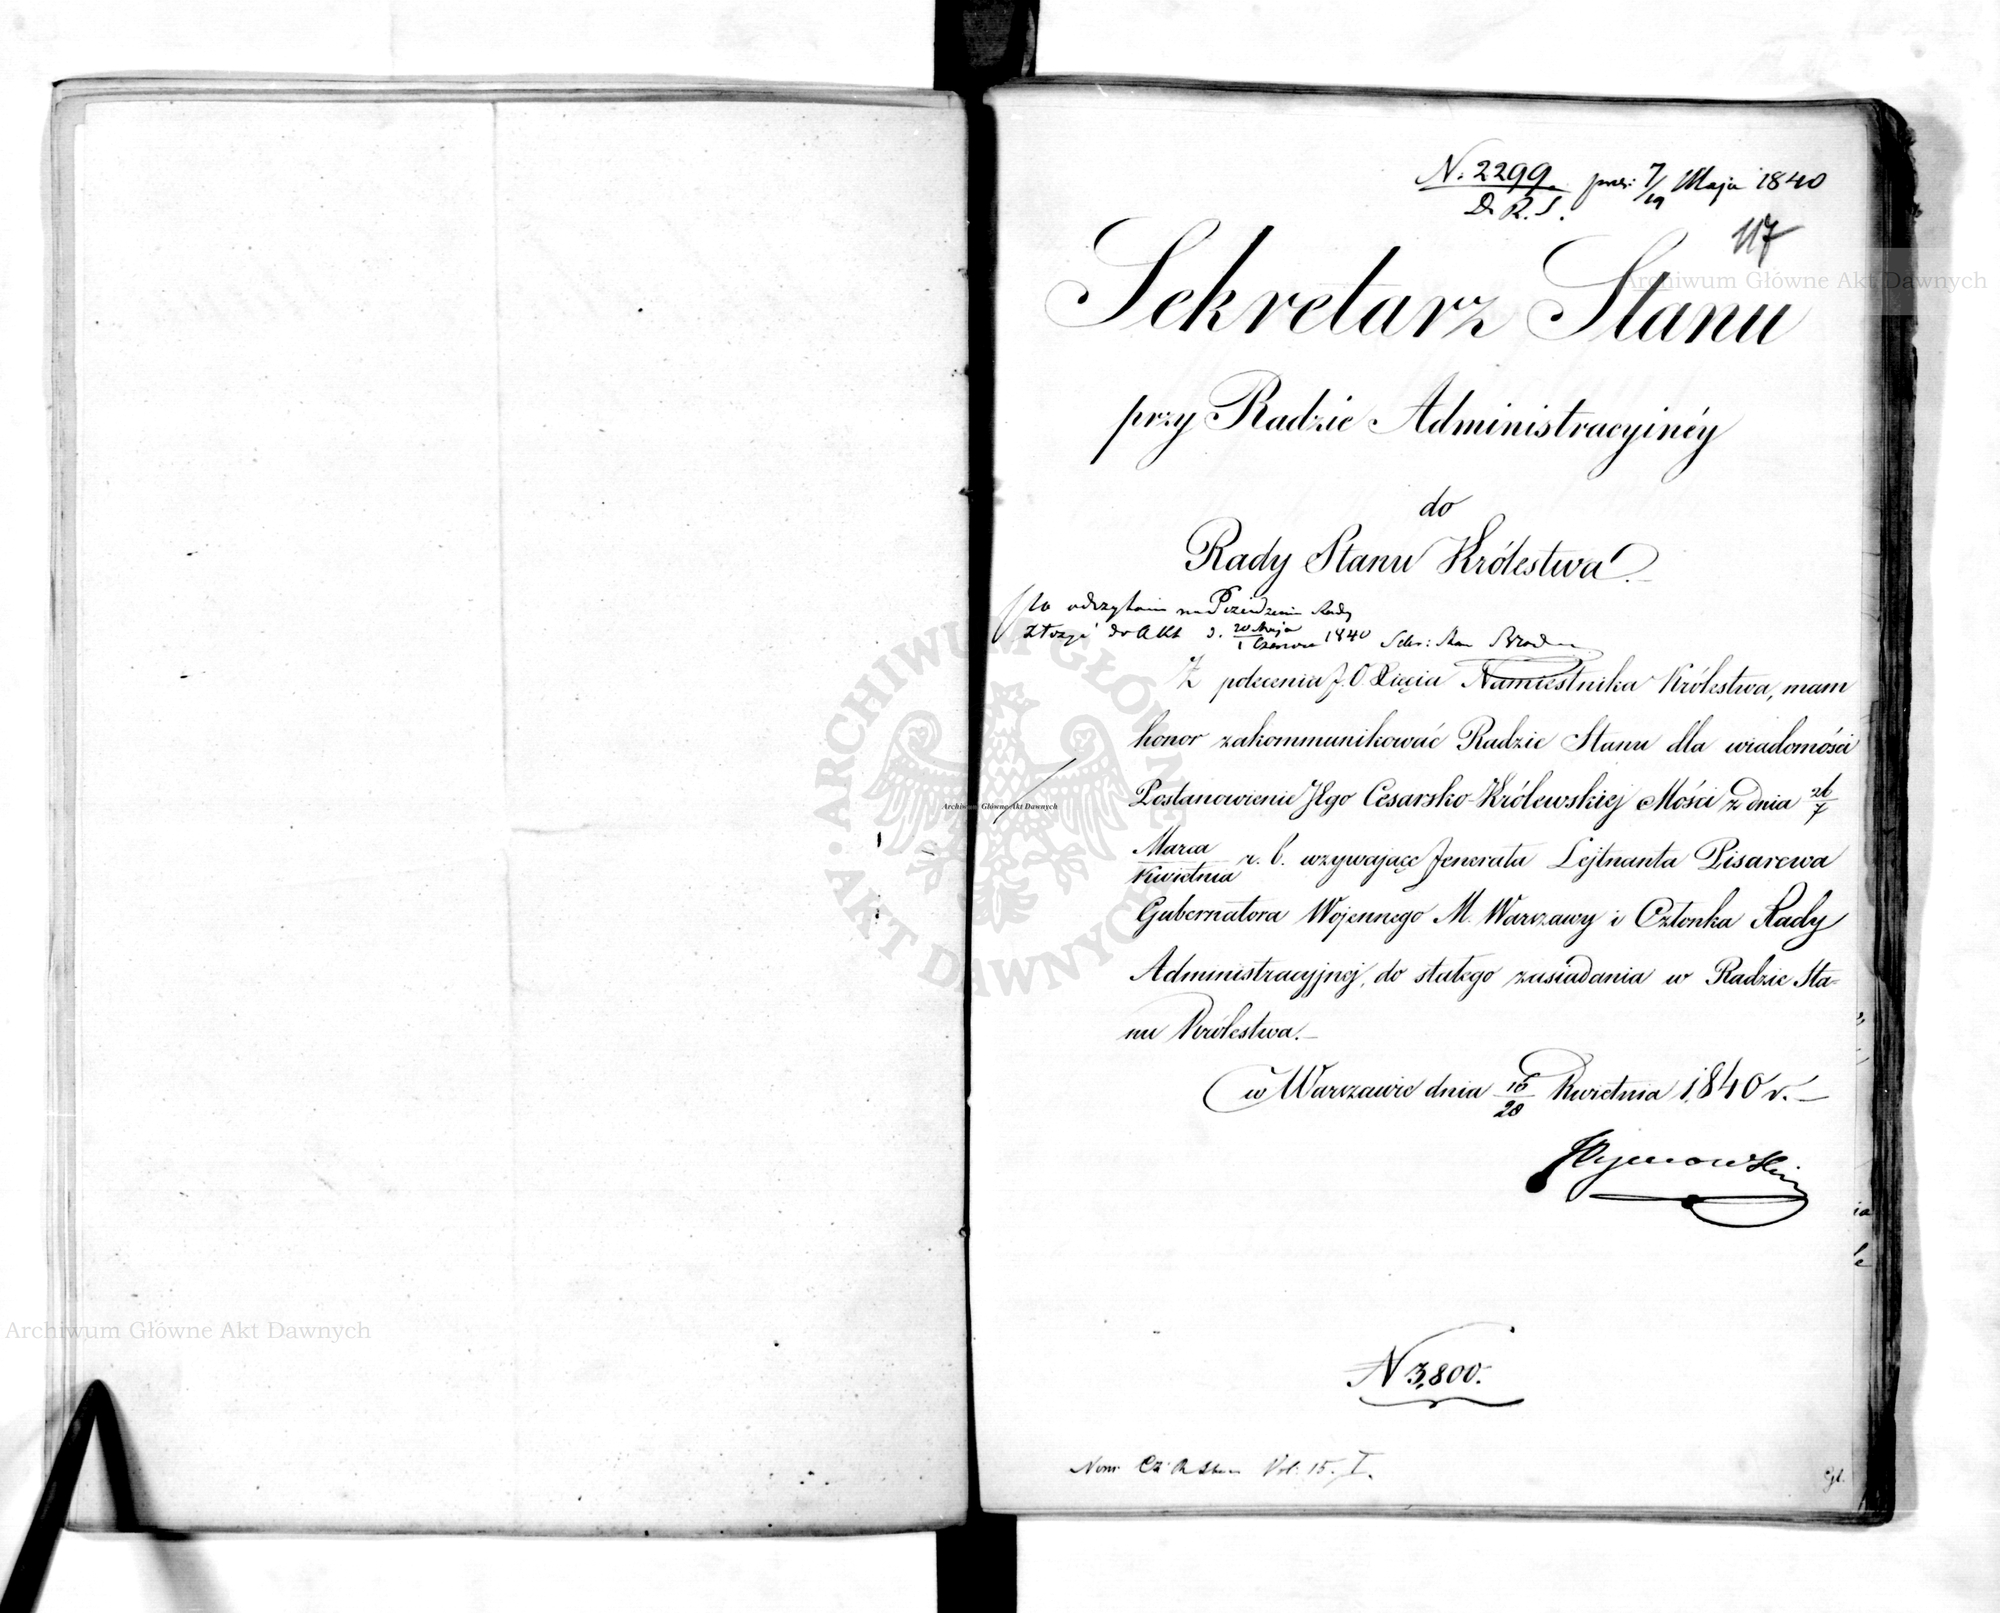 N. 2299
D. R. S.
prez: 7/19 Maja 1840
117
Sekretarz Stanu
przy Radzie Administracyinéy
do
Rady Stanu Królestwa.
Po odczytaniu na Posiedzeniu Rady
złożyć do Akt d. 20 Maja / 1 Czerwca 1840 Sekr: Stanu
Z polecenia J. O. Xięcia Namiestnika Królestwa, mam
honor zakommunikować Radzie Stanu dla wiadomości
Postanowienie Jego Cesarsko-Królewskiej Mości z dnia 26/7
Marca/Kwietnia r. b. wzywające Jenerała Lejtnanta Pisarewa
Gubernatora Wojennego M. Warszawy i Członka Rady
Administracyjnej, do stałego zasiadania w Radzie Sta-
nu Królestwa.
w Warszawie dnia 16/28 Kwietnia 1840 r.
Hymowski
N 3,800.
Nom: Cz: R Stanu Vol: 15. I.
Archiwum Główne Akt Dawnych
Archiwum Główne Akt Dawnych
Archiwum Główne Akt Dawnych
ARCHIWUM GŁÓWNE
AKT DAWNYCH